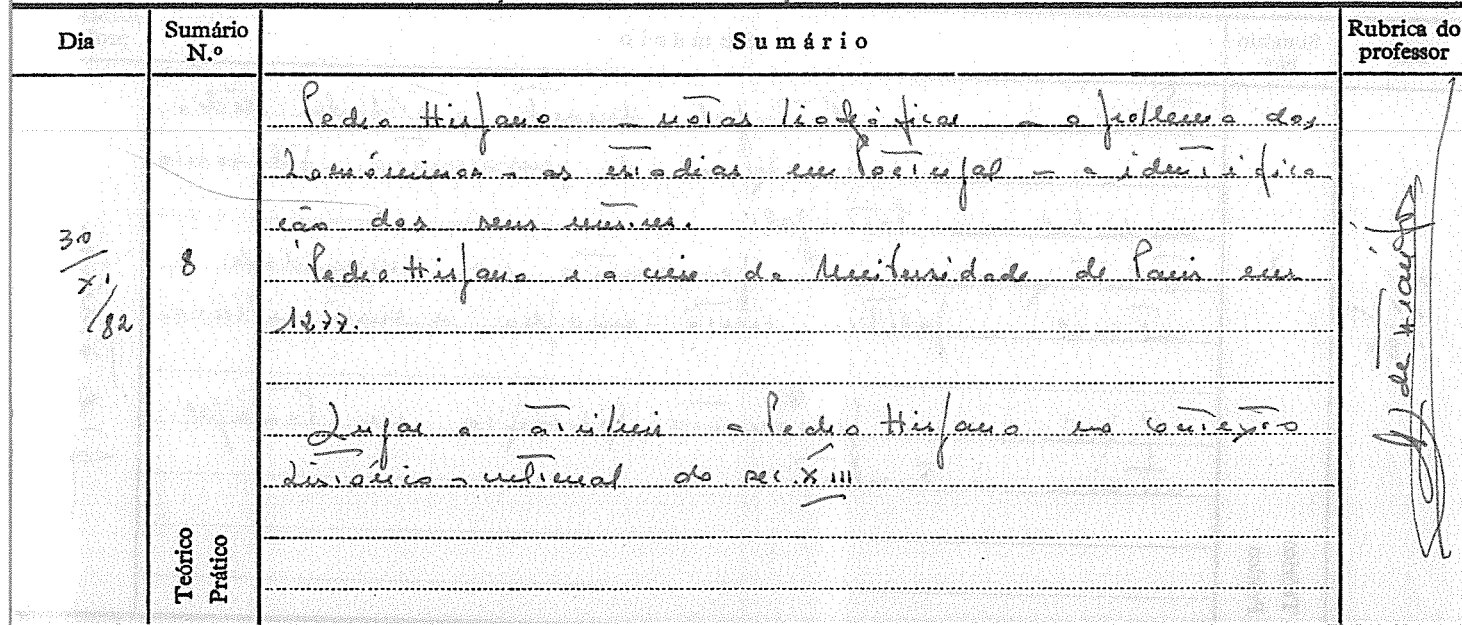 Dia Sumário N.º Sumário Rubrica do professor
Pedro Hispano – notas biográficas – o problema dos
homónimos – os estudios em Portugal – a identifica
ção dos seus
30/XI/82 8 Pedro Hispano e a crise da Universidade de Paris em
1277.
Lugar a atribuir a Pedro Hispano no contexto
histórico-cultural do sec. XIII
Teórico
Prático